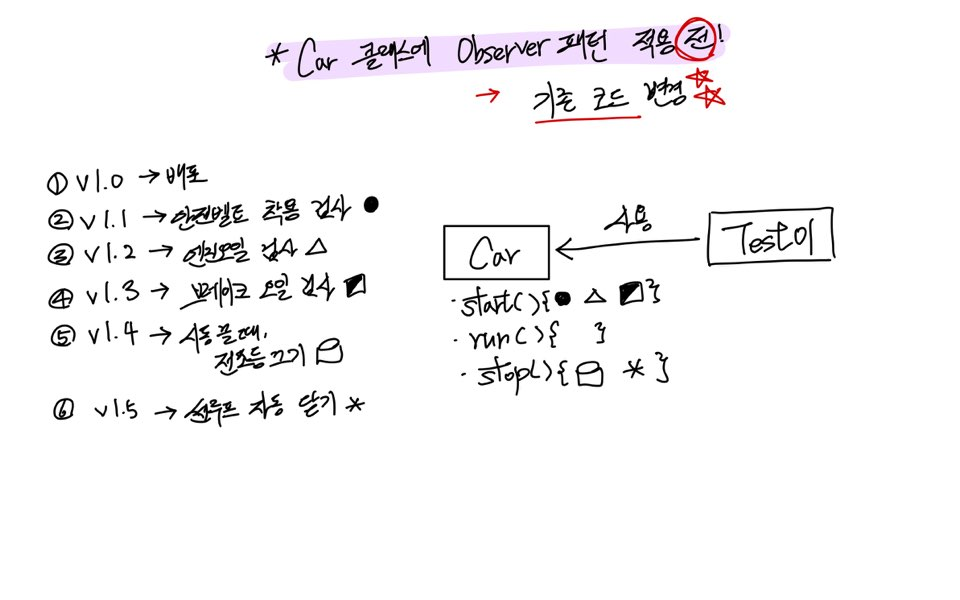 * Car 클래스에 Observer 패턴 적용 전!
→ 기존 코드 변경 ☆☆
① v1.0 → 배포
② v1.1 → 안전벨트 착용 검사 ●
③ v1.2 → 엔진오일 검사 △
④ v1.3 → 브레이크 오일 검사 ◪
⑤ v1.4 → 시동 끌 때,
전조등 끄기
⑥ v1.5 → 썬루프 자동 닫기 *
Car
사용
Test01
· start(){● △ ◪}
· run(){ }
· stop(){ * }